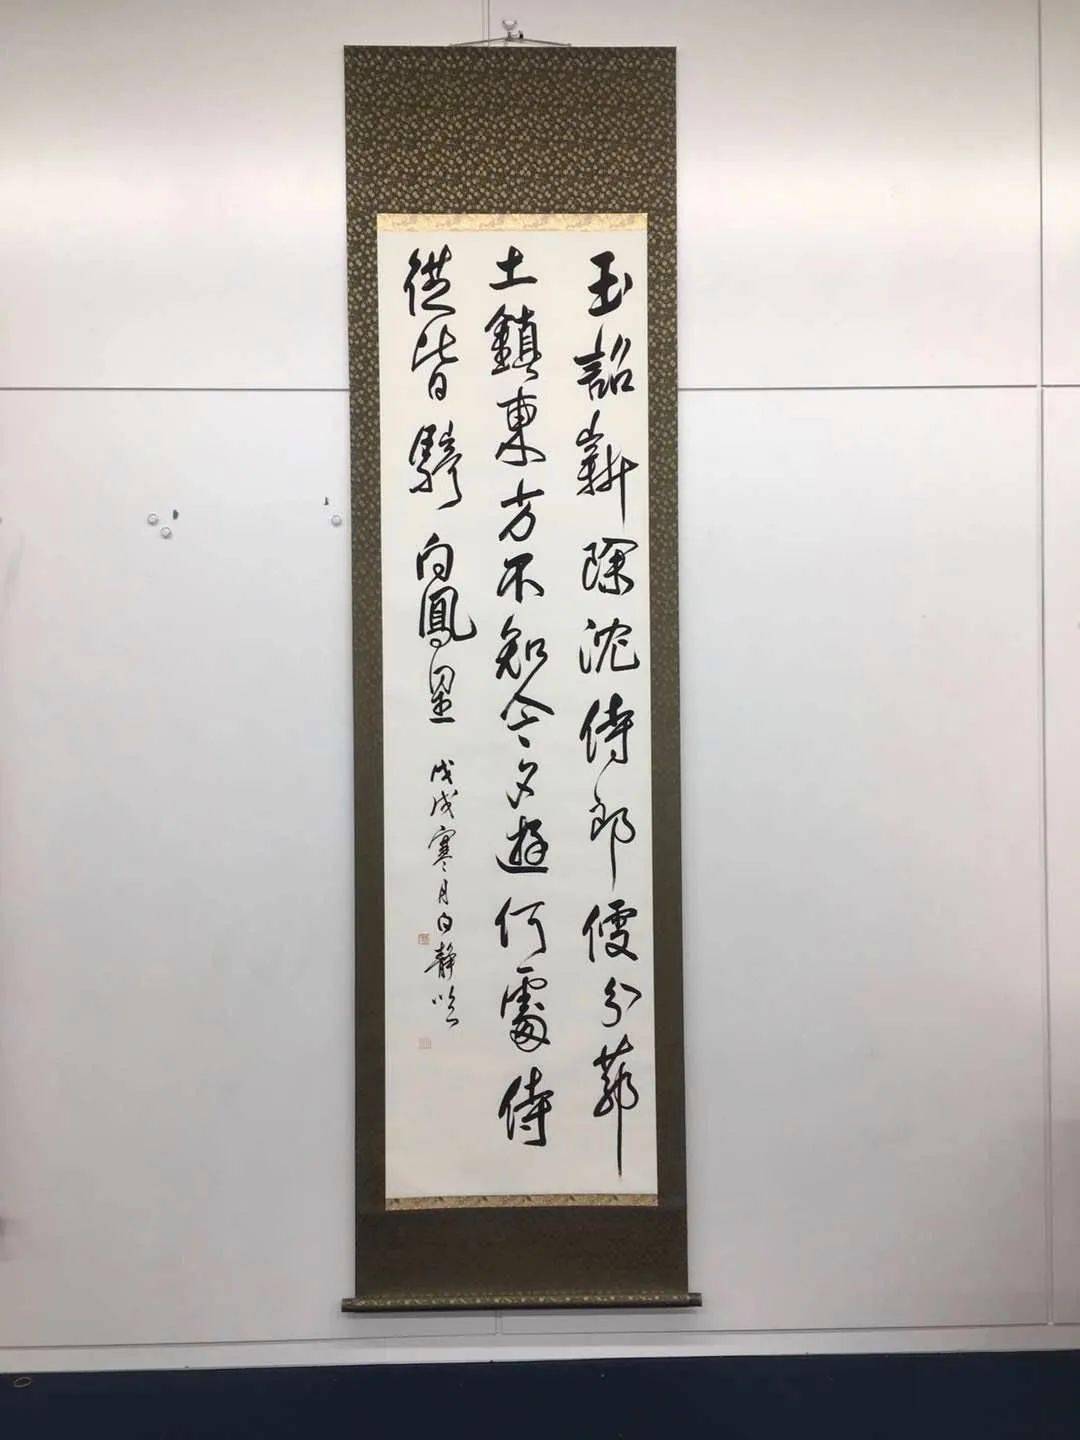 玉詔新除沈侍郎便分茅
土鎮東方不知今夕遊何處侍
從皆騎白鳳凰 戊戌寒月白静